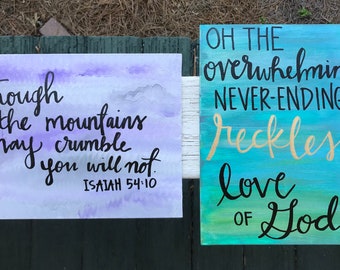 hough
the mountains
may crumble
you will not.
ISAIAH 54:10
OH THE
overwhelmin
NEVER-ENDING
reckles
love
OF God